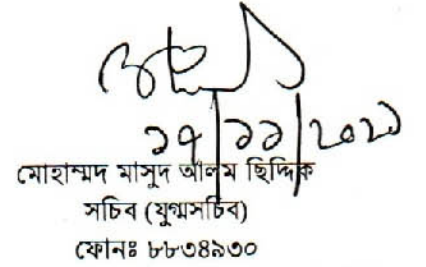 ১৭|১১|২০২১
মোহাম্মদ মাসুদ আলম ছিদ্দিক
সচিব (যুগ্মসচিব)
ফোনঃ ৮৮৩৪৯৩০